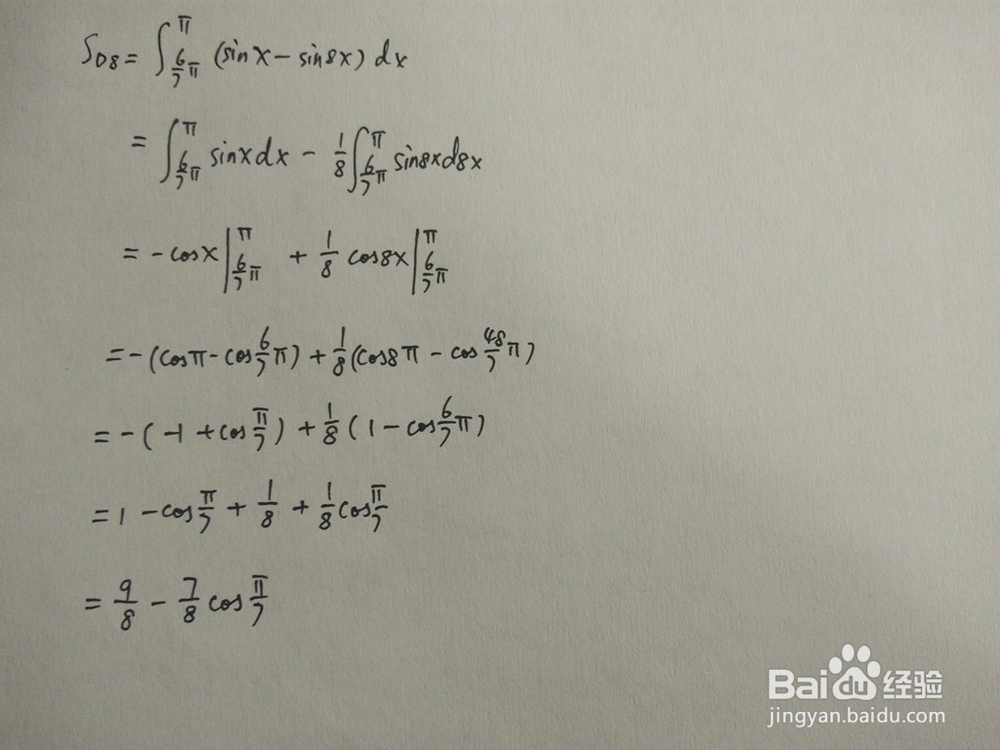 S_{D8} = ∫_{6/7 π}^{π} (sinx - sin8x) dx
= ∫_{6/7 π}^{π} sinxdx - 1/8 ∫_{6/7 π}^{π} sin8xd8x
= -cosx |_{6/7 π}^{π} + 1/8 cos8x |_{6/7 π}^{π}
= -(cosπ - cos 6/7 π) + 1/8 (cos8π - cos 48/7 π)
= -(-1 + cos π/7) + 1/8 (1 - cos 6/7 π)
= 1 - cos π/7 + 1/8 + 1/8 cos π/7
= 9/8 - 7/8 cos π/7
Baidu 经验
jingyan.baidu.com